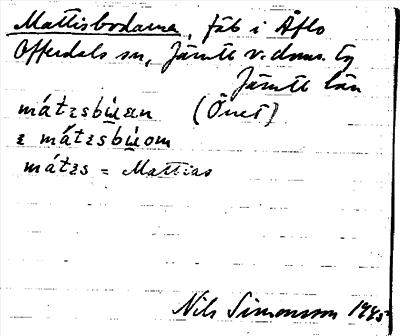 Mattisbodarna, fäb i Åflo
Offerdals sn, Jämtl v. doms. tg
Jämtl län
mátzsbùan (Önet)
z mátzsbùom
mátzs = Mattias
Nils Simonsson 1945